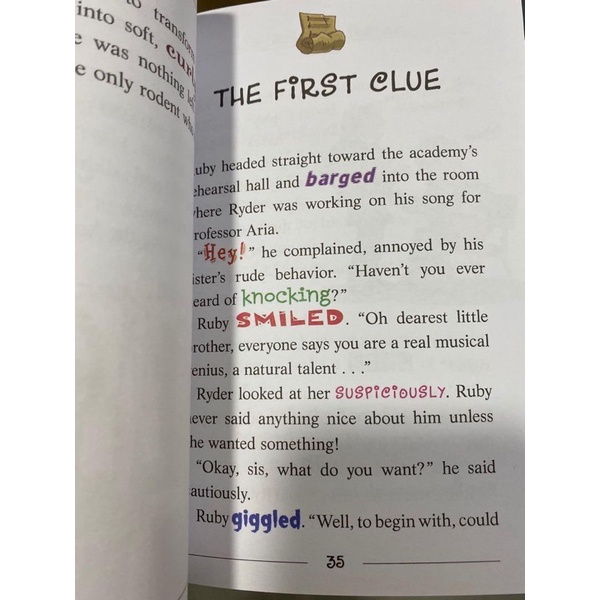 to transform
into soft, cur
was nothing
only rodent
THE FIRST CLUE
uby headed straight toward the academy's
ehearsal hall and barged into the room
here Ryder was working on his song for
rofessor Aria.
"Hey!" he complained, annoyed by his
ister's rude behavior. "Haven't you ever
eard of knocking?"
Ruby SMILED. "Oh dearest little
rother, everyone says you are a real musical
enius, a natural talent . . ."
Ryder looked at her SUSPICIOUSLY. Ruby
ever said anything nice about him unless
he wanted something!
"Okay, sis, what do you want?" he said
autiously.
Ruby giggled. "Well, to begin with, could
35